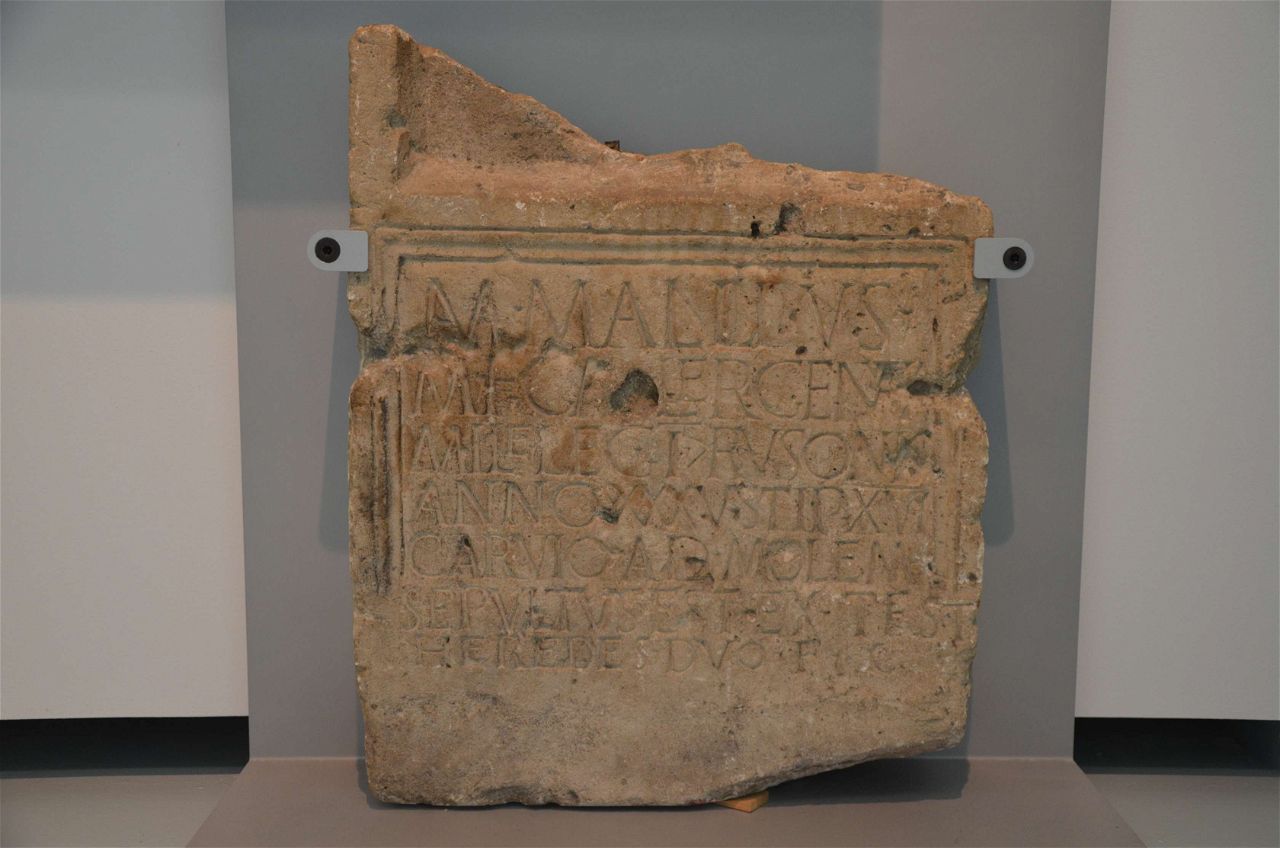 M·MALLIVS·
M·F·GALER·GENVA
MIL·LEG·I·>RVSONIS
ANNO·XXXV·STIP·XVI
CARVIO·AD·MOLEM
SEPVLTVS·EST·EX·TEST
HEREDES·DVO·F·C